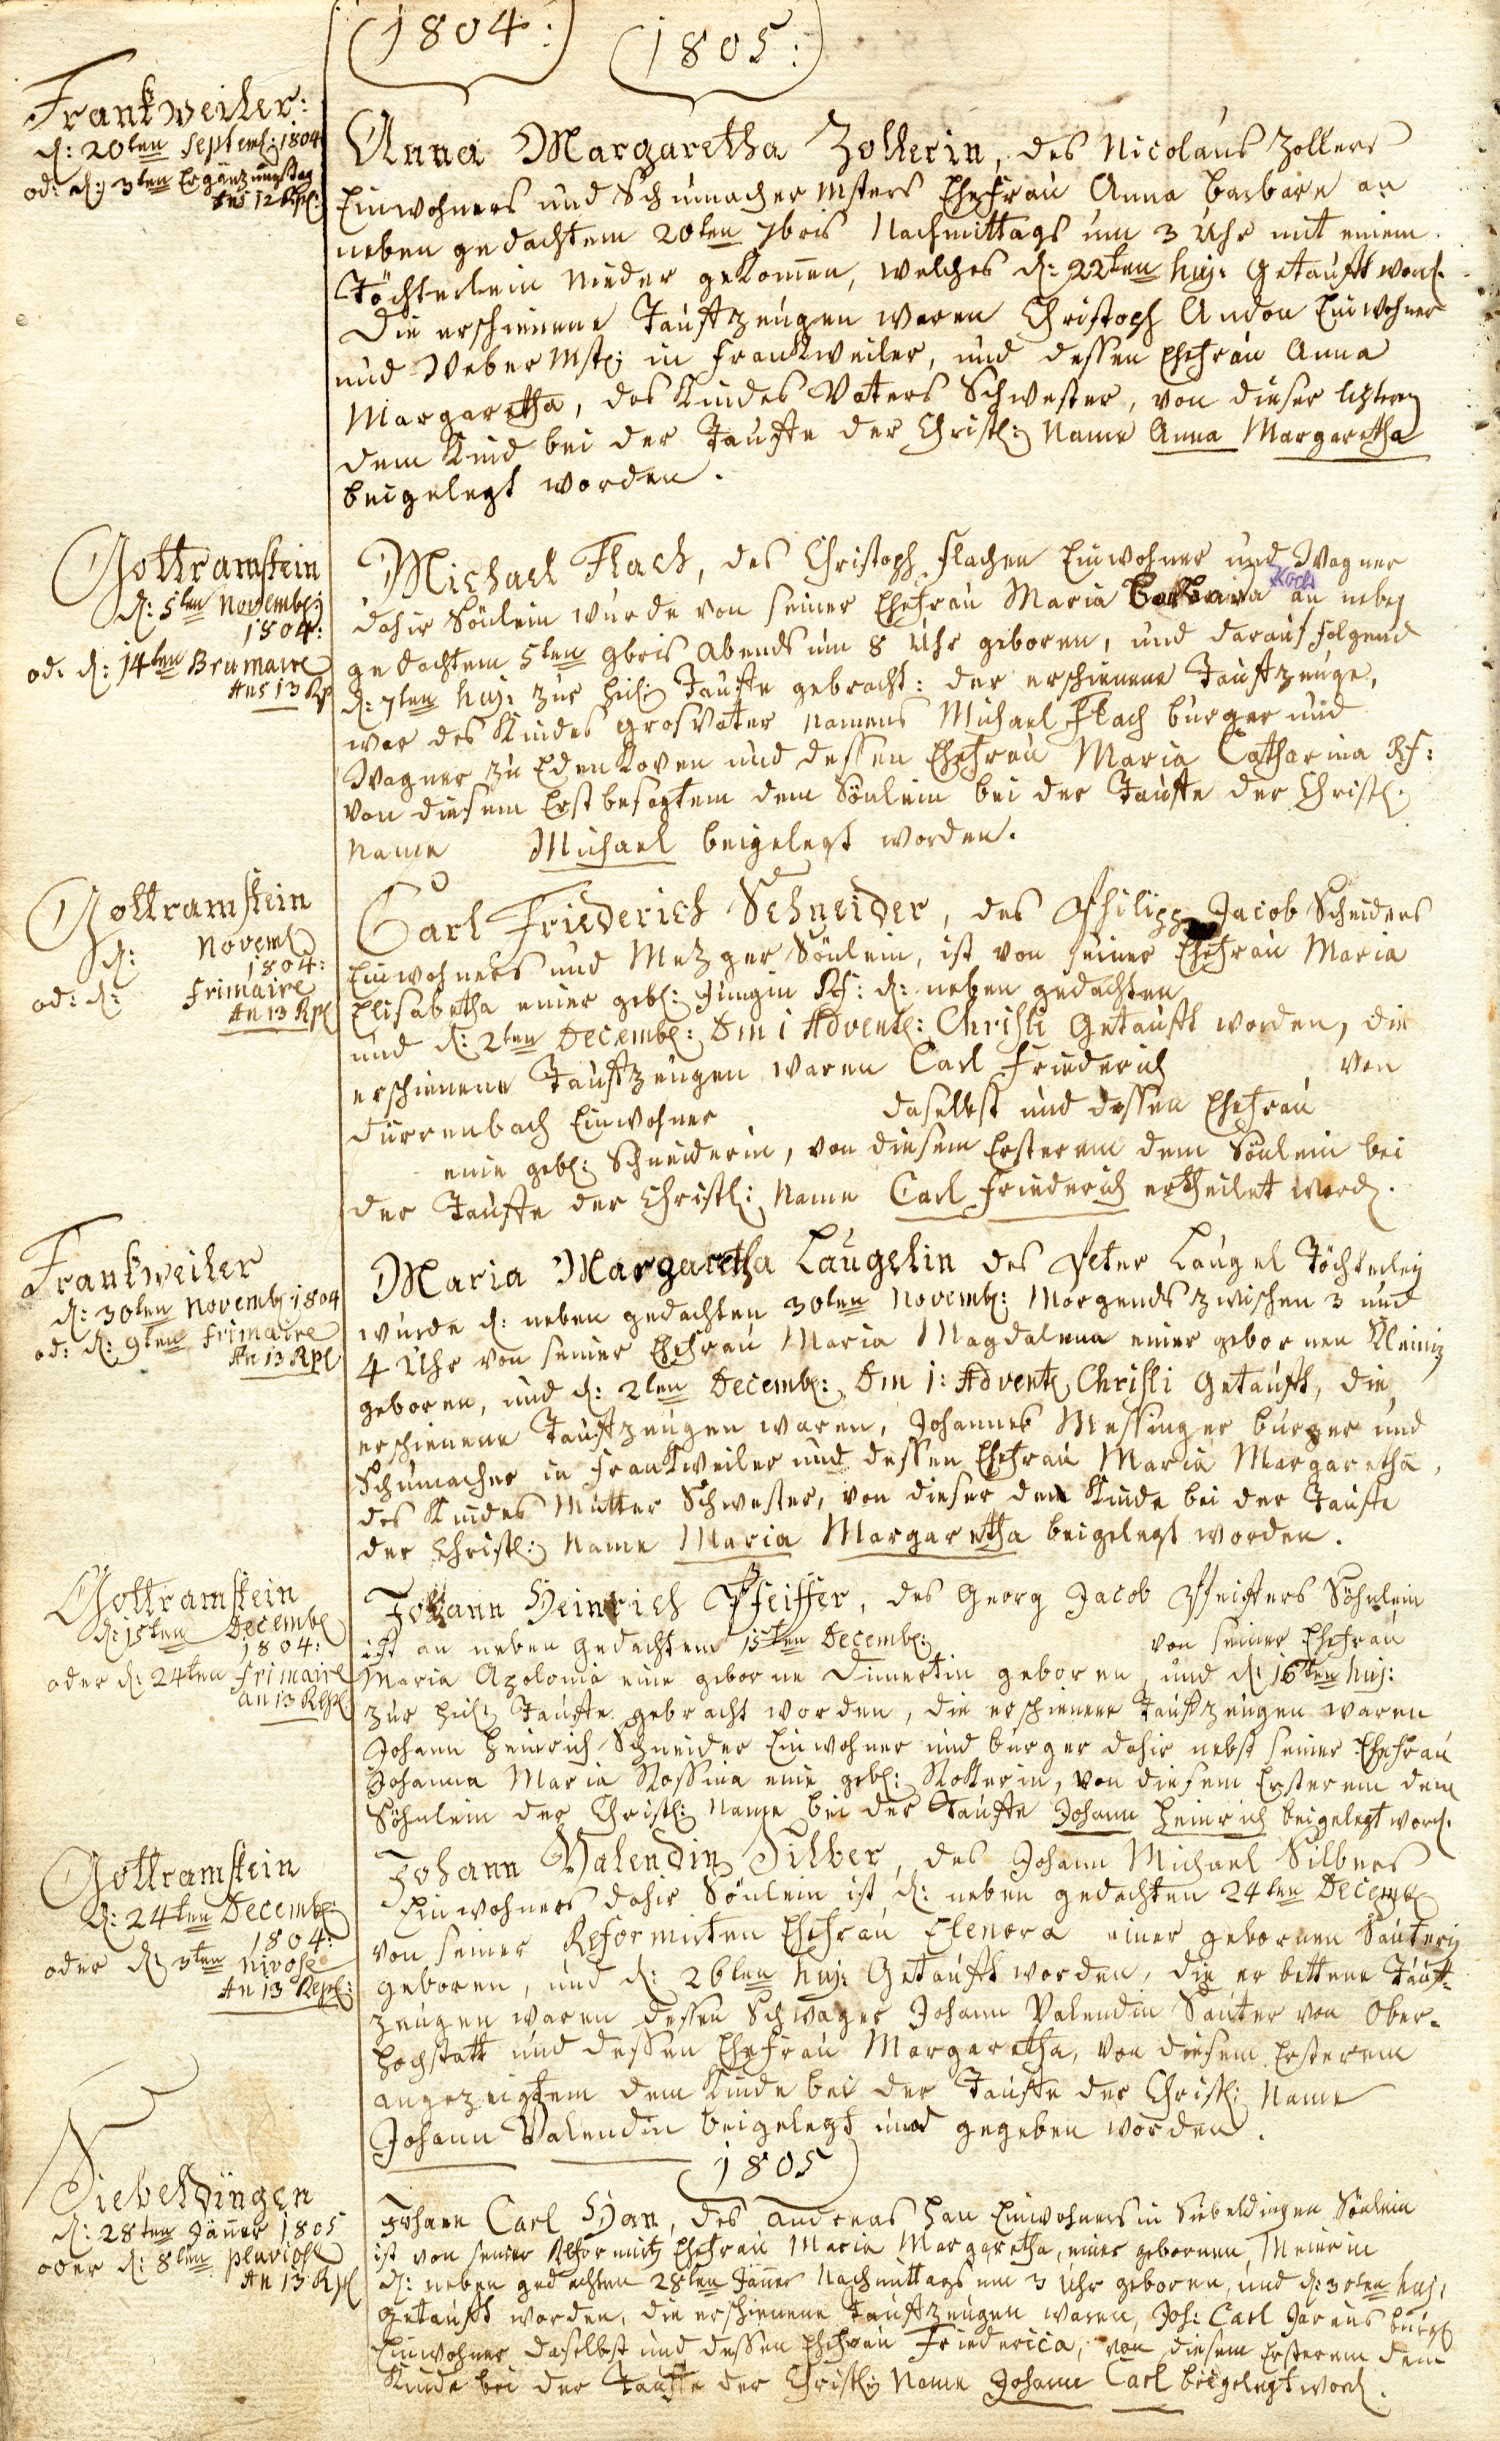 1804:
1805:
Frankweiler:
d: 20ten Septemb: 1804
od: d: 3ten Ergänzungstag
Ans 12 Rpl:
Anna Margaretha Zollerin, des Nicolaus Zollers
Einwohners und Schumacher Msters Ehefrau Anna Barbara an
neben gedachtem 20ten 7bris Nachmittags um 3 Uhr mit einem
Töchterlein nieder gekomen, welches d: 22ten huj: Getauft word.
Die erschienene Tauffzeugen waren Christoph Andon Einwohner
und Weber Mst: in Frankweiler, und dessen Ehefrau Anna
Margaretha, des Kindes Vaters Schwester, von dieser letztern
dem Kind bei der Tauffe der Christl: Name Anna Margaretha
beigelegt worden.
Gottramstein
d: 5ten Novemb:
1804:
od. d: 14ten Brumaire
Ans 13 Rp
Michael Flach, des Christoph Flachen Einwohner und Wagner
Koch
dahir Sönlein wurde von seiner Ehefrau Maria Barbara an neben
gedachtem 5ten 9bris Abends um 8 Uhr geboren, und darauf folgend
d: 7ten huj: zur heil: Tauffe gebracht: der erschienene Tauffzeuge,
war des Kindes Grosvater Namens Michael Flach burger und
Wagner zu Edenkoven und dessen Ehefrau Maria Catharina Rf:
von diesem Erstbesagtem dem Sönlein bei der Tauffe der Christl:
Name Michael beigelegt worden.
Gottramstein
d: Novemb
1804:
od: d: Frimaire
An 13 Rpl
Carl Friederich Schneider, des Philipp Jacob Schneiders
Einwohners und Metzger Sönlein, ist von seiner Ehefrau Maria
Elisabetha einer geb: Jungin Rf: d: neben gedachten
und d: 2ten Decemb: Dm 1 Advent: Christi Getauft worden, die
erschienene Tauffzeugen waren Carl Friederich von
Dürrenbach Einwohner daselbst und dessen Ehefrau
eine geb: Schneiderin, von diesem Ersterem dem Sönlein bei
der Tauffe der Christl: Name Carl Friederich ertheilet word.
Frankweiler
d: 30ten Novemb 1804
od: d: 9ten Frimaire
An 13 Rpl
Maria Margaretha Laugelin des Peter Laugel Töchterlein
wurde d: neben gedachten 30ten Novemb: Morgends zwischen 3 und
4 Uhr von seiner Ehefrau Maria Magdalena einer gebornen Kleinin
geboren, und d: 2ten Decemb: Dm 1: Advent Christi Getauft, die
erschienene Tauffzeugen waren, Johannes Messinger burger und
Schumacher in Frankweiler und dessen Ehefrau Maria Margaretha,
des Kindes Mutter Schwester, von dieser dem Kinde bei der Tauffe
der Christl: Name Maria Margaretha beigelegt worden.
Gottramstein
d: 15ten Decemb
1804:
oder d: 24ten Frimaire
an 13 Repl
Johann Heinrich Pfeiffer, des Georg Jacob Pfeiffers Söhnlein
ist an neben gedachtem 15ten Decemb: von seiner Ehefrau
Maria Apolonia eine geborne geboren, und d: 16ten huj:
zur heil: Tauffe gebracht worden, die erschienene Tauffzeugen waren
Johann Heinrich Schneider Einwohner und burger dahir nebst seiner Ehefrau
Johanna Maria Rossina eine geb: von diesem Ersterem dem
Söhnlein der Christl: Name bei der Tauffe Johann Heinrich beigelegt word.
Gottramstein
d: 24ten Decemb:
1804:
oder d: 3ten Nivose
An 13 Repl:
Johann Valendin Silber, des Johann Michael Silbers
Einwohners dahir Sönlein ist d: neben gedachten 24ten Decemb
von seiner Reformirten Ehefrau Elenora einer gebornen Sauterin
geboren, und d: 26ten huj: Getauft worden, die erbettene Tauff-
zeugen waren dessen Schwager Johann Valendin Sauter von Ober-
hochstatt und dessen Ehefrau Margaretha, von diesem Ersterem
angezeigtem dem Kinde bei der Tauffe der Christl: Name
Johann Valendin beigelegt und gegeben worden.
1805
Siebeldingen
d: 28ten Jäner 1805
oder d: 8ten pluviose
An 13 Rpl
Johann Carl Han, des Andreas Han Einwohners in Siebeldingen Sönlein
ist von seiner Reformirt Ehefrau Maria Margaretha, einer gebornen Meierin
d: neben gedachten 28ten Jäner Nachmittags um 3 Uhr geboren, und d: 30ten huj:
getauft worden, die erschienene Tauffzeugen waren, Joh: Carl burg
Einwohner daselbst und dessen Ehefrau Friedericca, von diesem Ersterem dem
Kinde bei der Tauffe der Christl: Name Johann Carl beigelegt word.